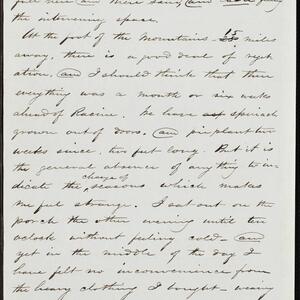 full here and there sand, and
the intervening space.
At the foot of the Mountains - 15 miles
away, there is a good deal of veget
ation, and I should think that there
everything was a month or six weeks
ahead of Racine. We have spinach
grown out of doors, and pie plant two
weeks since, two feet long. But it is
the general absence of anything to in-
dicate the change of seasons which makes
me feel strange. I sat out on the
porch the other evening until ten
oclock without feeling cold - and
yet in the middle of the day I
have felt no inconvenience from
the heavy clothing I bought - wearing